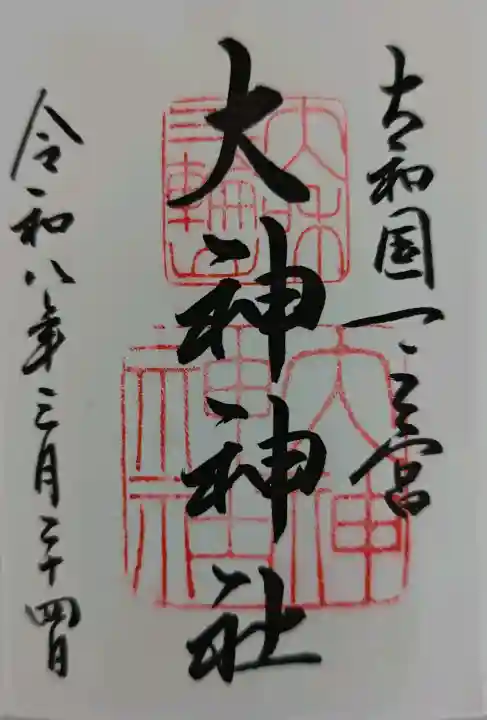 大和国一之宮
大神神社
令和八年三月二十四日
大和
三輪山
大神
神社